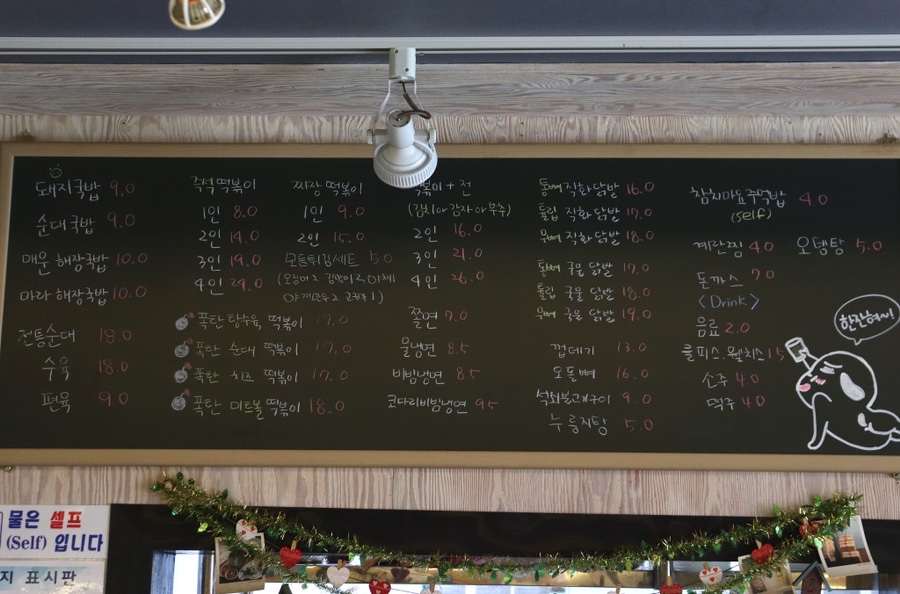 돼지국밥 9.0
순대국밥 9.0
매운 해장국밥 10.0
마라 해장국밥 10.0
전통순대 18.0
수육 18.0
편육 9.0
즉석 떡볶이
1인 8.0
2인 14.0
3인 19.0
4인 24.0
짜장 떡볶이
1인 9.0
2인 15.0
모듬튀김세트 5.0
폭탄 탕수육 떡볶이 17.0
폭탄 순대 떡볶이 17.0
폭탄 치즈 떡볶이 17.0
폭탄 미트볼 떡볶이 18.0
떡볶이 + 전
(김치 or 감자 or 부추)
2인 16.0
3인 21.0
4인 26.0
쫄면 7.0
물냉면 8.5
비빔냉면 8.5
코다리비빔냉면 9.5
통뼈 직화 닭발 16.0
튤립 직화 닭발 17.0
무뼈 직화 닭발 18.0
통뼈 국물 닭발 17.0
튤립 국물 닭발 18.0
무뼈 국물 닭발 19.0
껍데기 13.0
오돌뼈 16.0
석쇠불고기구이 9.0
누룽지탕 5.0
참치마요주먹밥 4.0
(self)
계란찜 4.0 오뎅탕 5.0
돈까스 7.0
<Drink>
음료 2.0
쿨피스.웰치스 1.5
소주 4.0
맥주 4.0
한잔혀~!
물은 셀프
(Self) 입니다
지 표시판